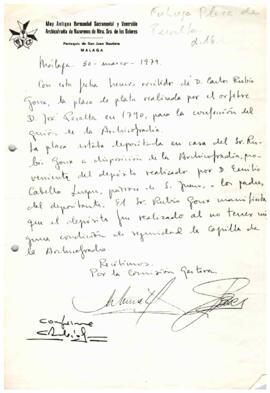 Muy Antigua Hermandad Sacramental y Veneración
Archicofradía de Nazarenos de Ntra. Sra. de los Dolores
Parroquia de San Juan Bautista
MALAGA
Entrega Placa de
Peralta
Málaga 30-marzo-1979.
Con esta fecha hemos recibido de D. Carlos Rubio
Goux, la placa de plata realizada por el orfebre
D. José Peralta en 1790, para la confección del
guión de la Archicofradía.
La placa estaba depositada en casa del Sr. Ru-
bio Goux a disposición de la Archicofradía, pro-
veniente del depósito realizado por D. Emilio
Cabello Luque, párroco de S. Juan, a los padres
del depositante. El Sr. Rubio Goux manifiesta
que el depósito fue realizado al no tener nin-
guna condición de seguridad la Capilla de
la Archicofradía.
Recibimos.
Por la Comisión Gestora.
Conforme